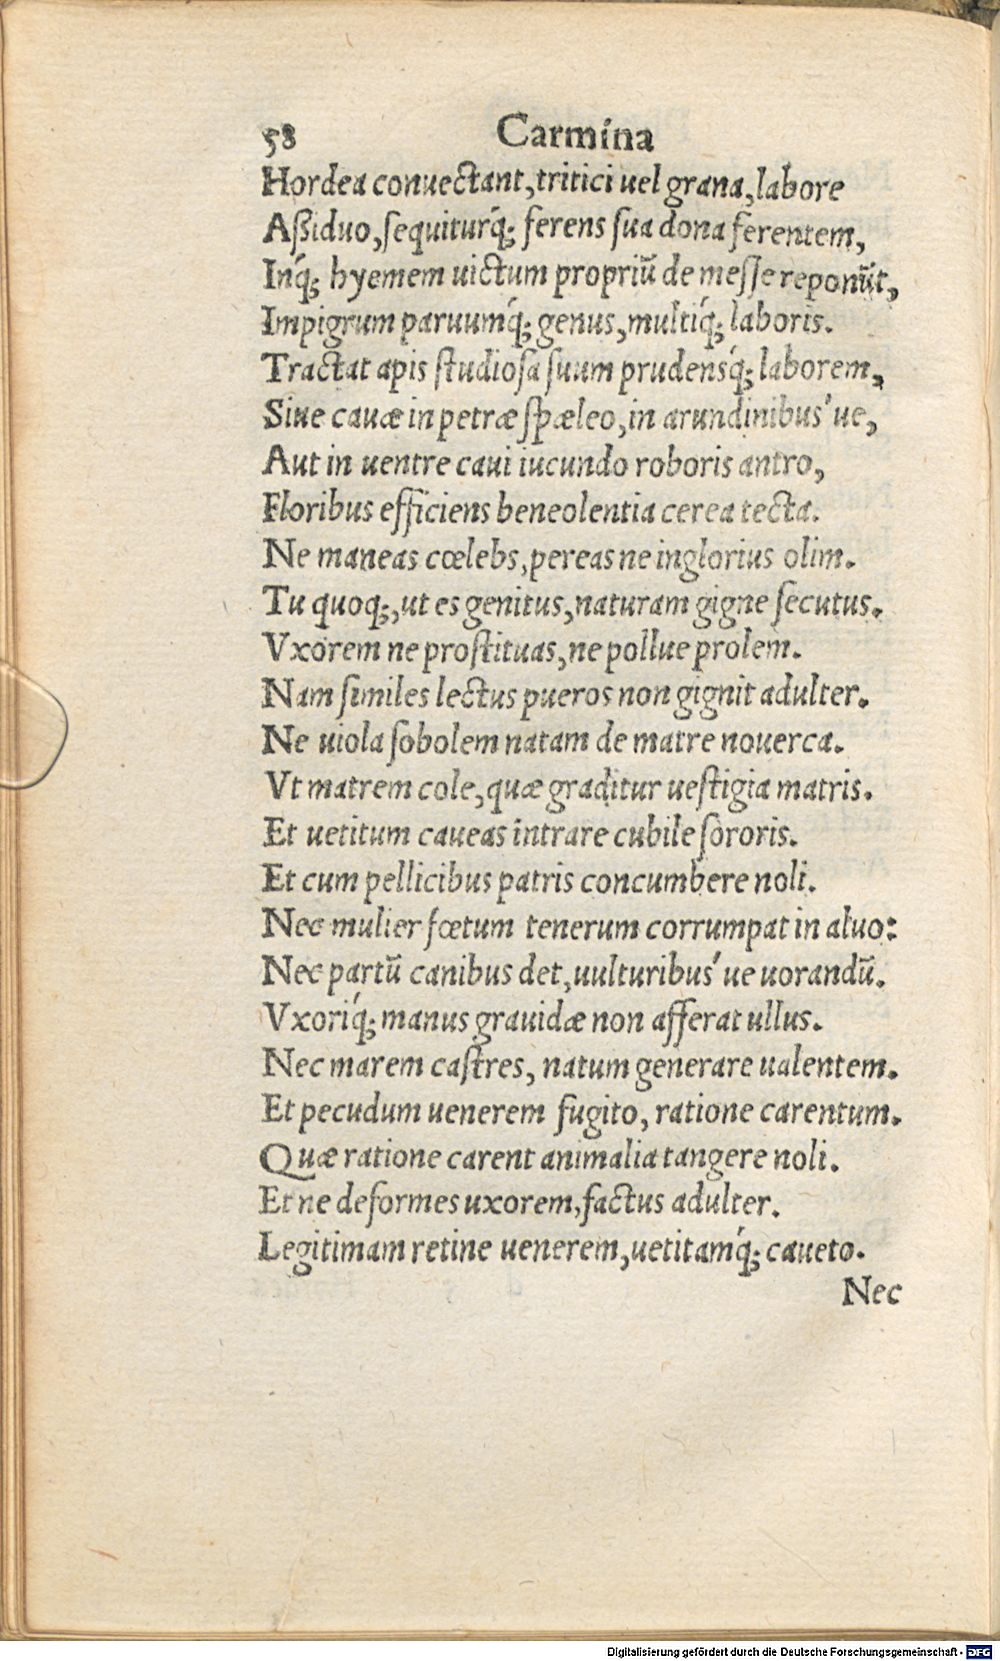 58 Carmina
Hordea conuectant, tritici uel grana, labore
Aßiduo, sequiturq́; ferens sua dona ferentem,
Inq́; hyemem uictum propriũ de messe reponũt,
Impigrum paruumq́; genus, multiq́; laboris.
Tractat apis studiosa suum prudensq́; laborem,
Siue cauæ in petræ spæleo, in arundinibus'ue,
Aut in uentre caui iucundo roboris antro,
Floribus efficiens beneolentia cerea tecta.
Ne maneas cœlebs, pereas ne inglorius olim.
Tu quoq;, ut es genitus, naturam gigne secutus.
Vxorem ne prostituas, ne pollue prolem.
Nam similes lectus pueros non gignit adulter.
Ne uiola sobolem natam de matre nouerca.
Vt matrem cole, quæ graditur uestigia matris.
Et uetitum caueas intrare cubile sororis.
Et cum pellicibus patris concumbere noli.
Nec mulier fœtum tenerum corrumpat in aluo:
Nec partũ canibus det, uulturibus'ue uorandũ.
Vxoriq́; manus grauidæ non afferat ullus.
Nec marem castres, natum generare ualentem.
Et pecudum uenerem fugito, ratione carentum.
Quæ ratione carent animalia tangere noli.
Et ne deformes uxorem, factus adulter.
Legitimam retine uenerem, uetitamq́; caueto.
Nec
Digitalisierung gefördert durch die Deutsche Forschungsgemeinschaft - DFG